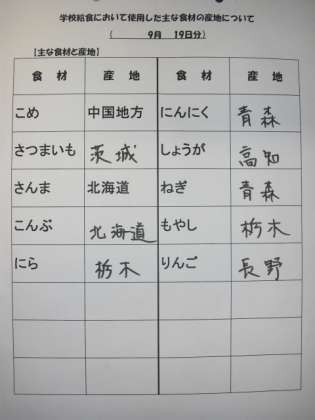 学校給食において使用した主な食材の産地について
( 9月 19日分)
【主な食材と産地】
食 材 産 地 食 材 産 地
こめ 中国地方 にんにく 青森
さつまいも 茨城 しょうが 高知
さんま 北海道 ねぎ 青森
こんぶ 北海道 もやし 栃木
にら 栃木 りんご 長野